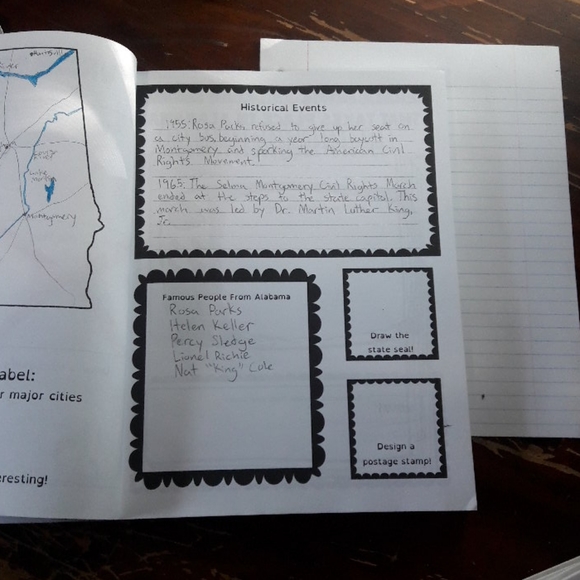 Montgomery
abel:
r major cities
eresting!
Historical Events
1955: Rosa Parks refused to give up her seat on
a city bus, beginning a year long boycott in
Montgomery and sparking the American Civil
Rights Movement.
1965: The Selma Montgomery Civil Rights March
ended at the steps to the state capitol. This
march was led by Dr. Martin Luther King,
Jr.
Famous People From Alabama
Rosa Parks
Helen Keller
Percy Sledge
Lionel Richie
Nat "King" Cole
Draw the
state seal!
Design a
postage stamp!